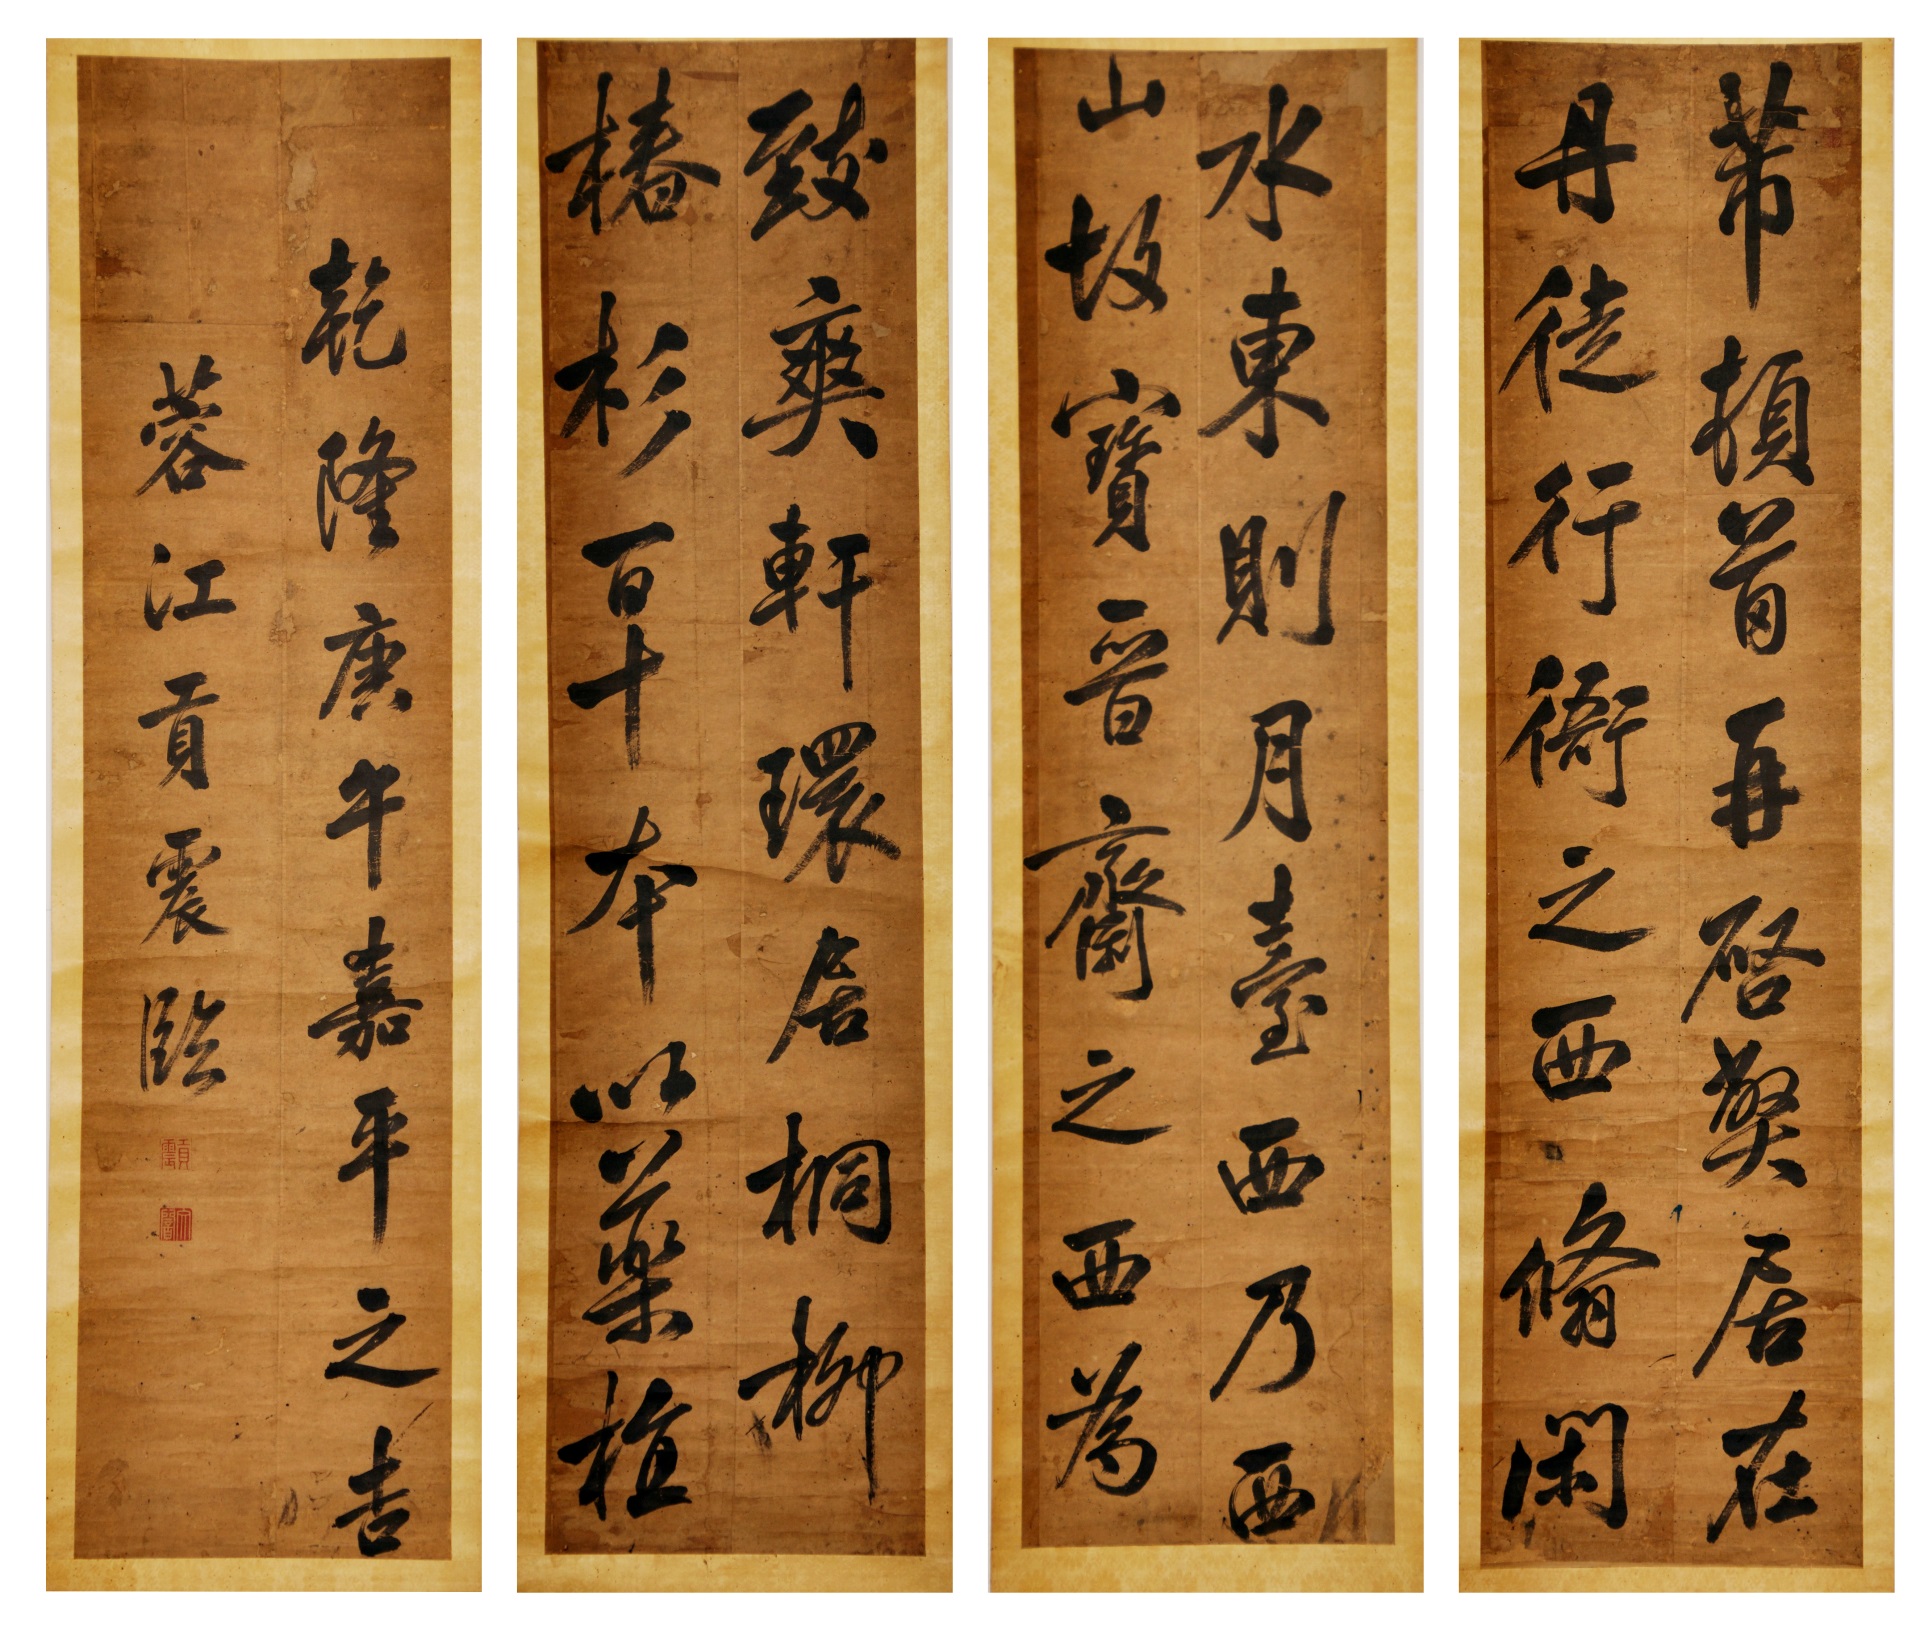 芾頓首再啓弊居在
丹徒行衙之西翛閑
水東則月臺西乃西
山故寶晉齋之西為
致爽軒環居桐柳
椿杉百十本以藥植
乾隆庚午嘉平之吉
蓉江貢震臨